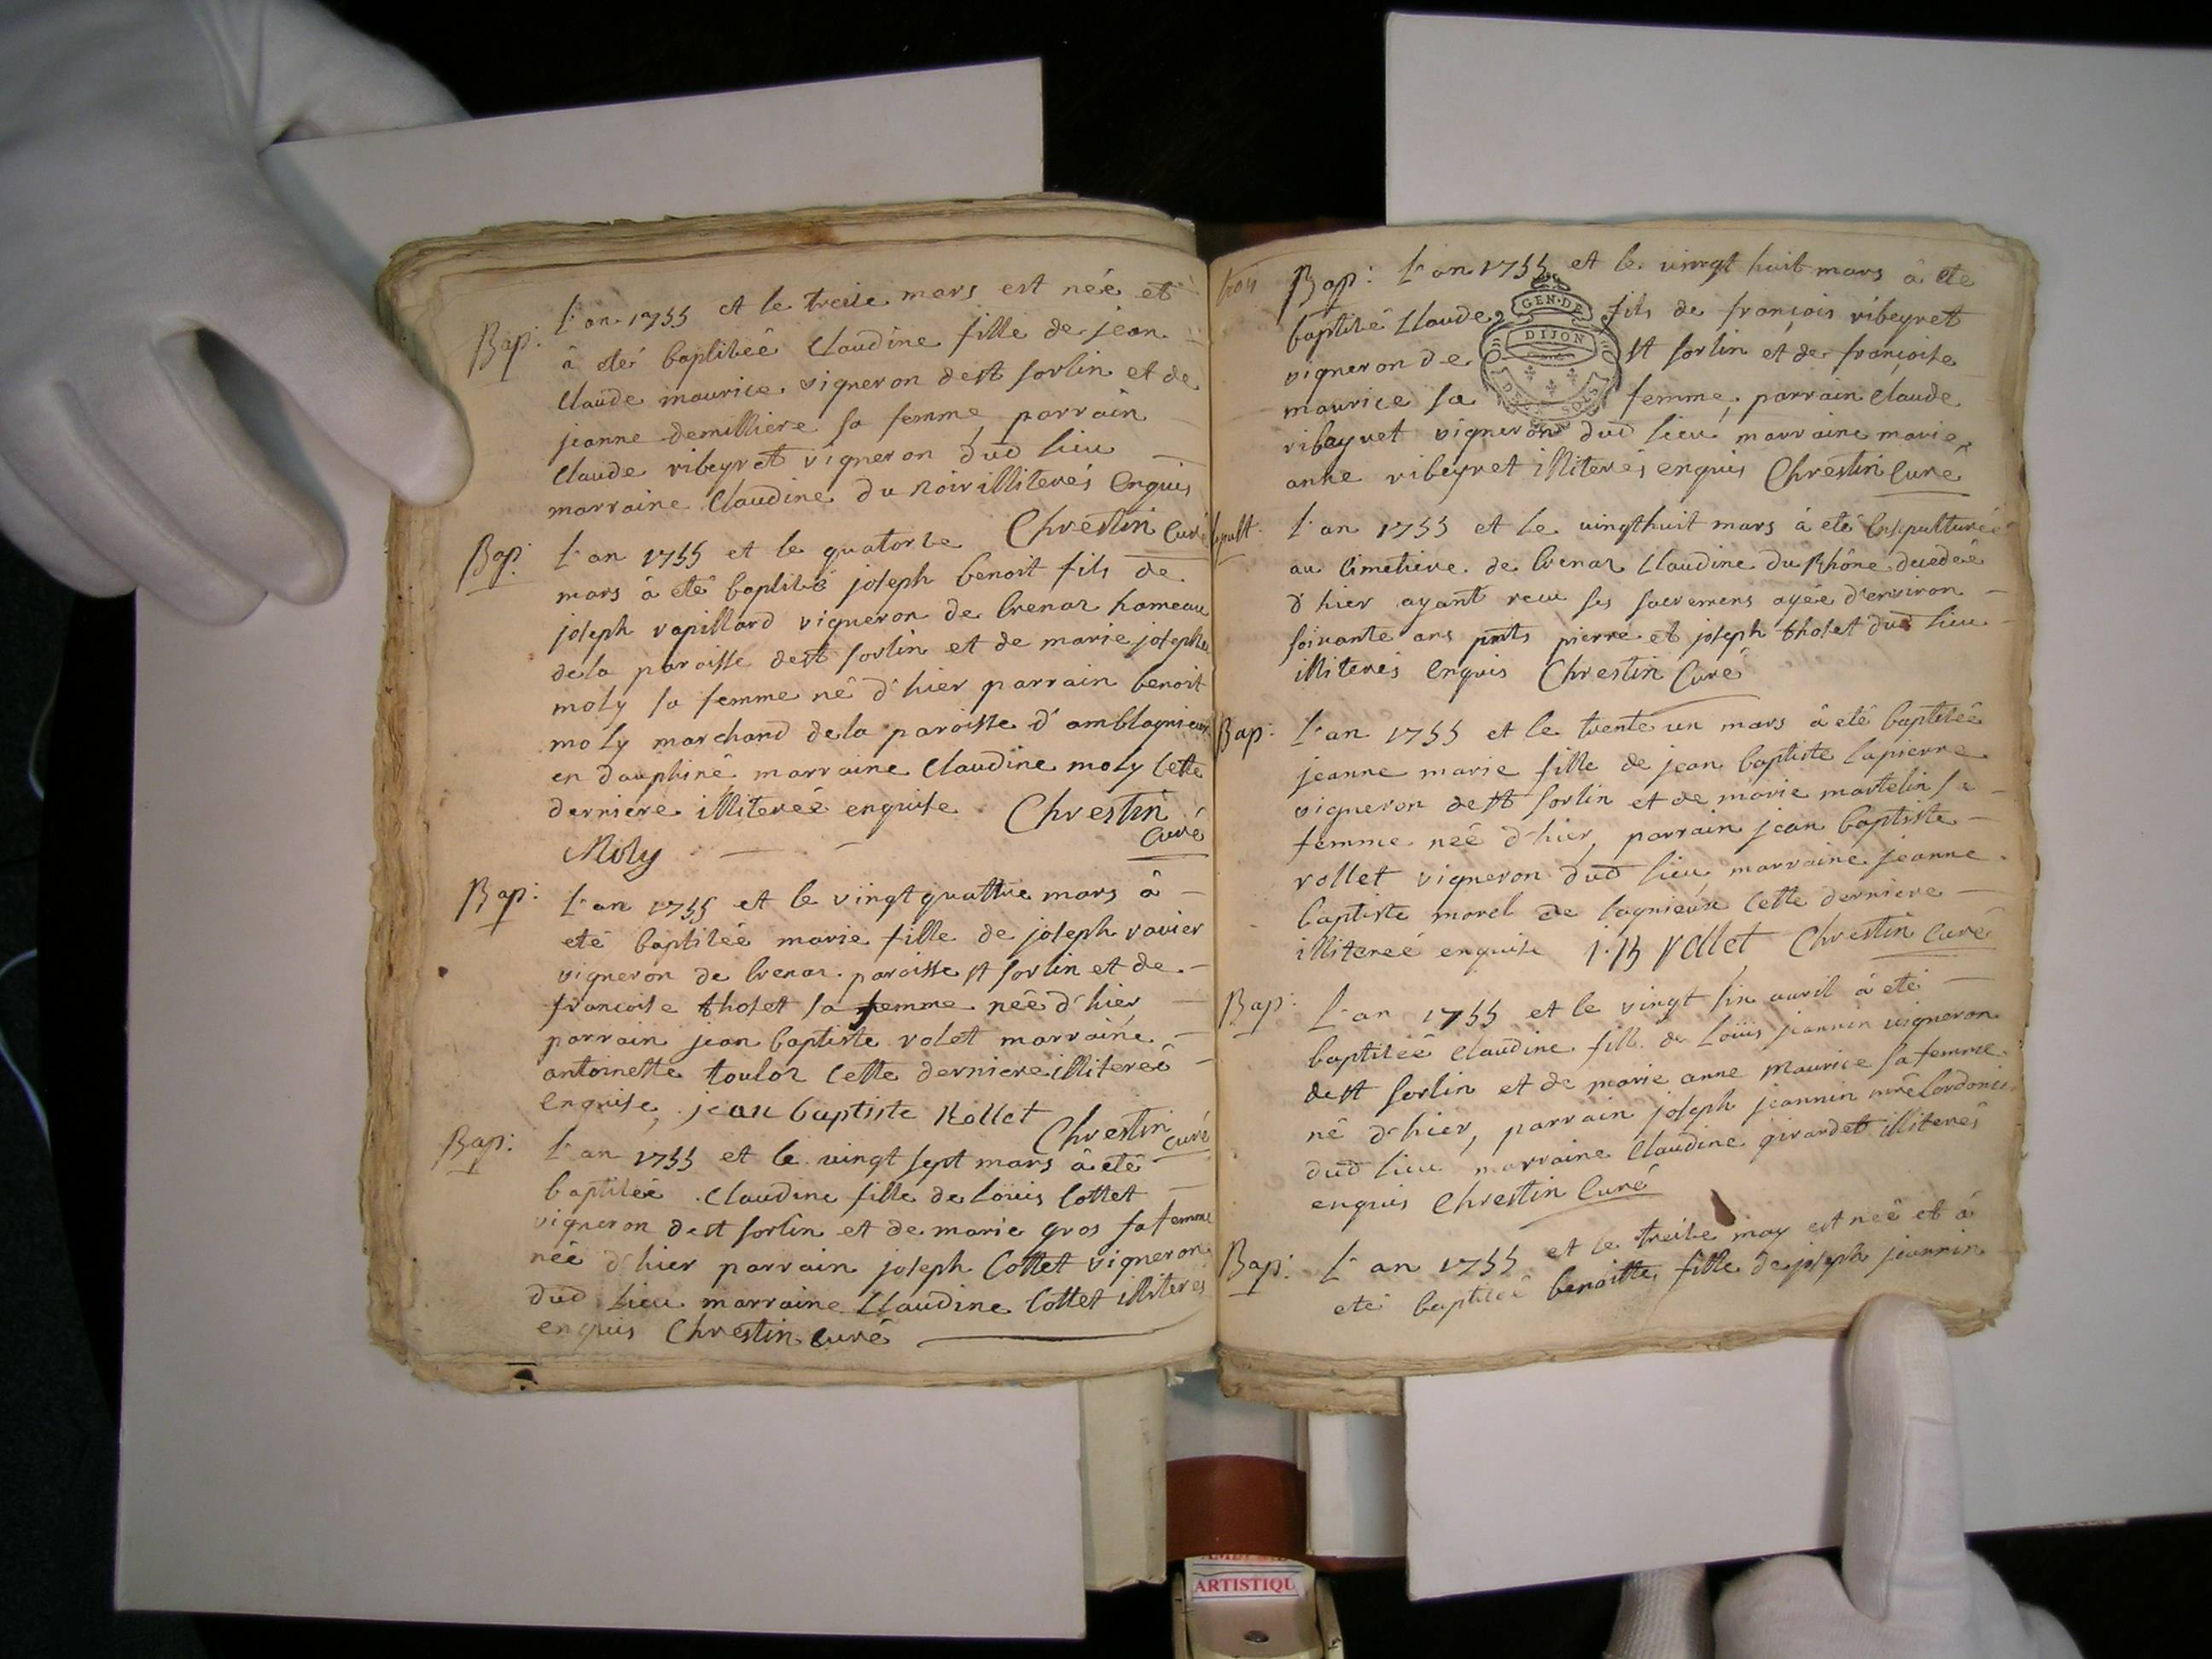 Bap: L'an 1755 et le treise mars est née et
à eté baptisée Claudine fille de jean
Claude maurice vigneron de st sorlin et de
jeanne demilliere sa femme, parrain
Claude ribeyret vigneron dud lieu
marraine Claudine du noir illiterés enquis
Chrestin Curé
Bap: L'an 1755 et le quatorse
mars à eté baptisé joseph benoit fils de
joseph vapillard vigneron de brenaz hameau
de la paroisse de st sorlin et de marie josephe
moly sa femme né d'hier parrain benoit
moly marchand de la paroisse d'amblagnieux
en dauphiné marraine Claudine moly cette
derniere illiterée enquise Chrestin
Curé
Moly
Bap: L'an 1755 et le vingt quattre mars à
eté baptisée marie fille de joseph ravier
vigneron de brenaz paroisse st sorlin et de
francoise tholet sa femme née d'hier
parrain jean baptiste rolet marraine
antoinette touloz cette derniere illiterée
enquise, jean baptiste Rollet
Chrestin curé
Bap: L'an 1755 et le vingt sept mars à eté
baptisée Claudine fille de loüis Cottet
vigneron de st sorlin et de marie gros sa femme
née d'hier parrain joseph Cottet vigneron
dud lieu marraine Claudine Cottet illiterés
enquis Chrestin curé
trois
Bap: L'an 1755 et le vingt huit mars à eté
baptisé Claude, fils de françois ribeyret
vigneron de st sorlin et de françoise
maurice sa femme, parrain Claude
ribeyret vigneron dud lieu marraine marie
anne ribeyret illiterés enquis Chrestin Curé
GEN. DE
DIJON
DEUX SOLS
sepult. L'an 1755 et le vingthuit mars à eté ensepulturée
au Cimetiere de brenaz Claudine du Rhône decedée
d'hier ayant recu ses sacremens agée d'environ
soixante ans pnts pierre et joseph tholet dud lieu
illiterés enquis Chrestin Curé
Bap: L'an 1755 et le trente un mars à eté baptisée
jeanne marie fille de jean baptiste lapierre
vigneron de st sorlin et de marie martelin sa
femme née d'hier, parrain jean baptiste
rollet vigneron dud lieu marraine jeanne
baptiste morel de lagnieux cette derniere
illiterée enquise j.B Rollet Chrestin curé
Bap: L'an 1755 et le vingt six avril à eté
baptisée Claudine fille de Loüis jeannin vigneron
de st sorlin et de marie anne Maurice sa femme
né d'hier, parrain joseph jeannin mre Cordonier
dud lieu marraine Claudine girardet illiterés
enquis Chrestin Curé
Bap: L'an 1755 et le treise may est née et à
eté baptisée benoitte fille de joseph jeannin
ARTISTIQU